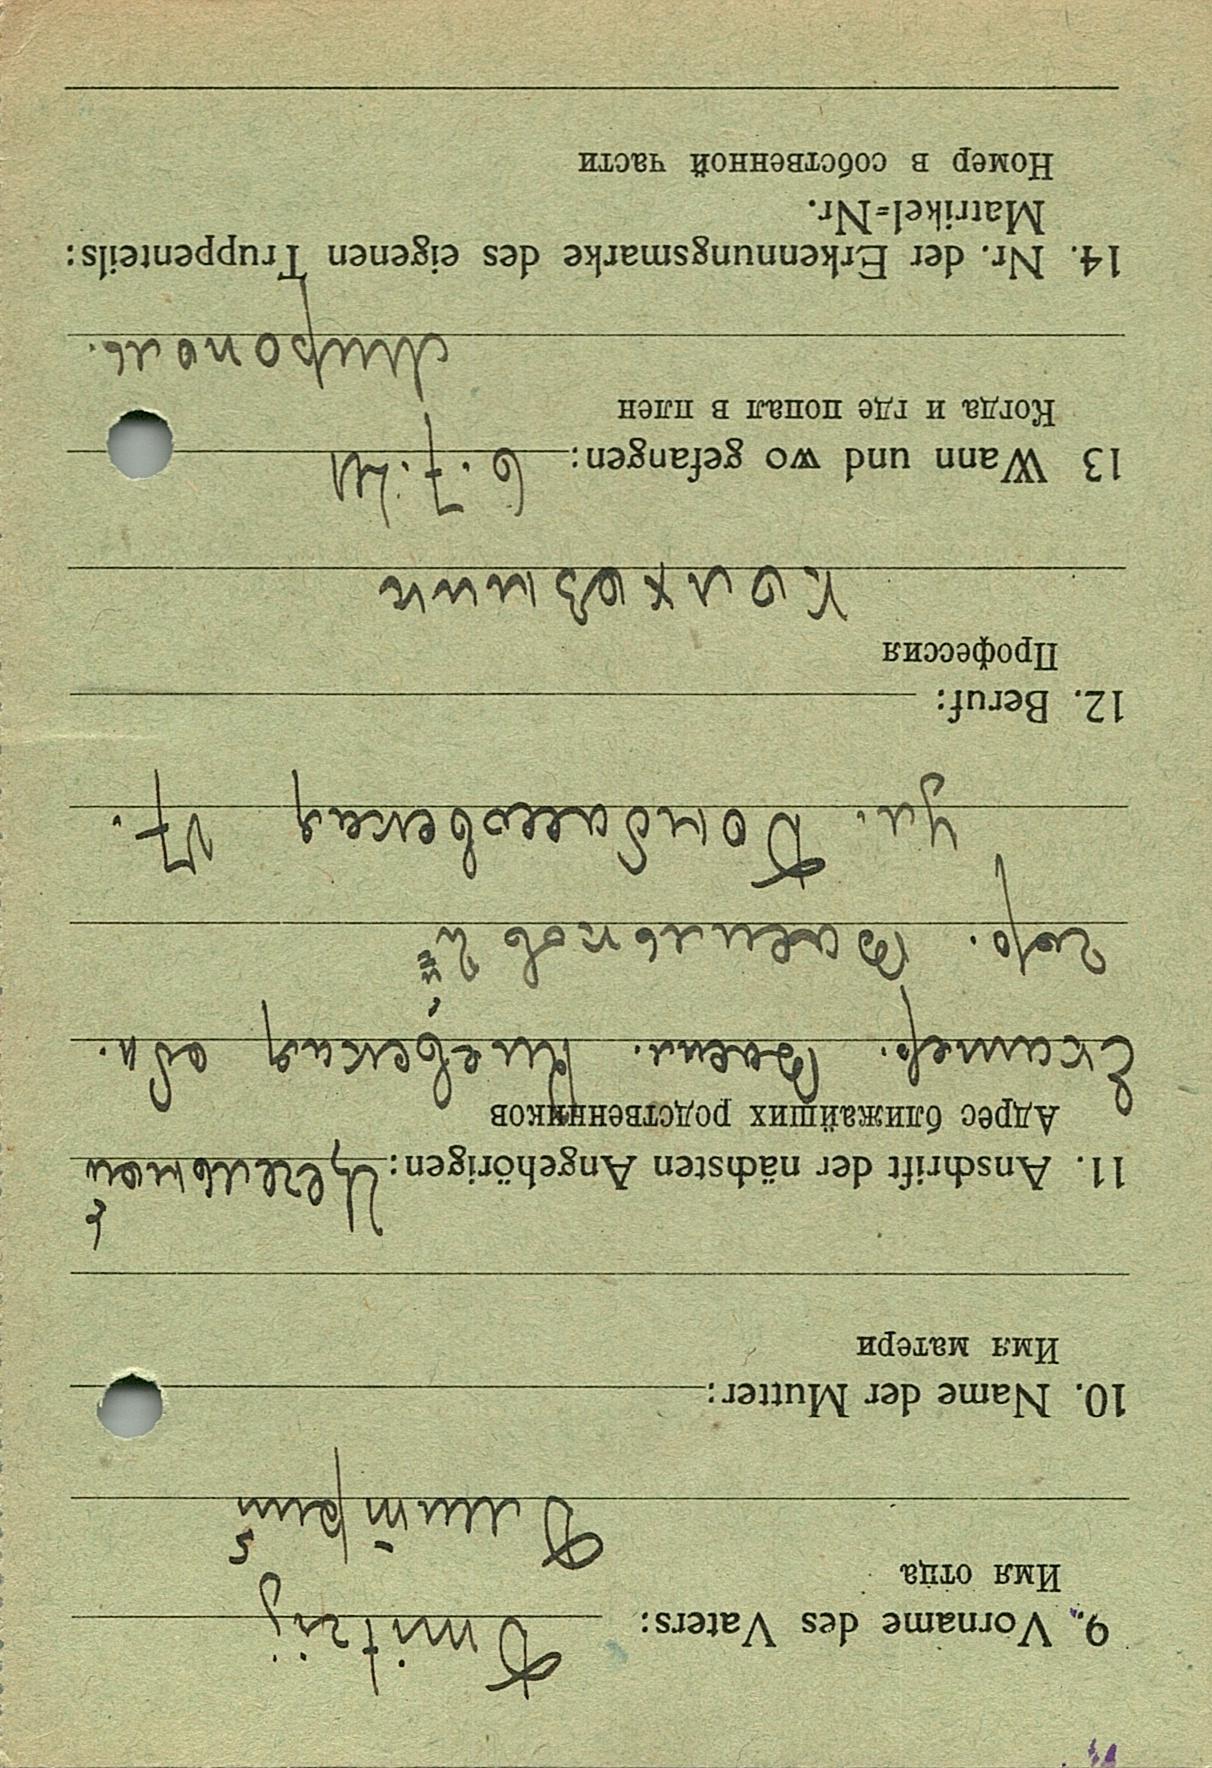 9. Vorname des Vaters: Dmitrij
Имя отца
Дмитрий
10. Name der Mutter:
Имя матери
11. Anschrift der nächsten Angehörigen:
Адрес ближайших родственников
Екатер. Васил. Киевская обл.
гор. Васильков 2й
ул.
17.
12. Beruf:
Профессия
Колхозник
13 Wann und wo gefangen: 6.7.41
Когда и где попал в плен
Мирополь.
14. Nr. der Erkennungsmarke des eigenen Truppenteils:
Matrikel=Nr.
Номер в собственной части